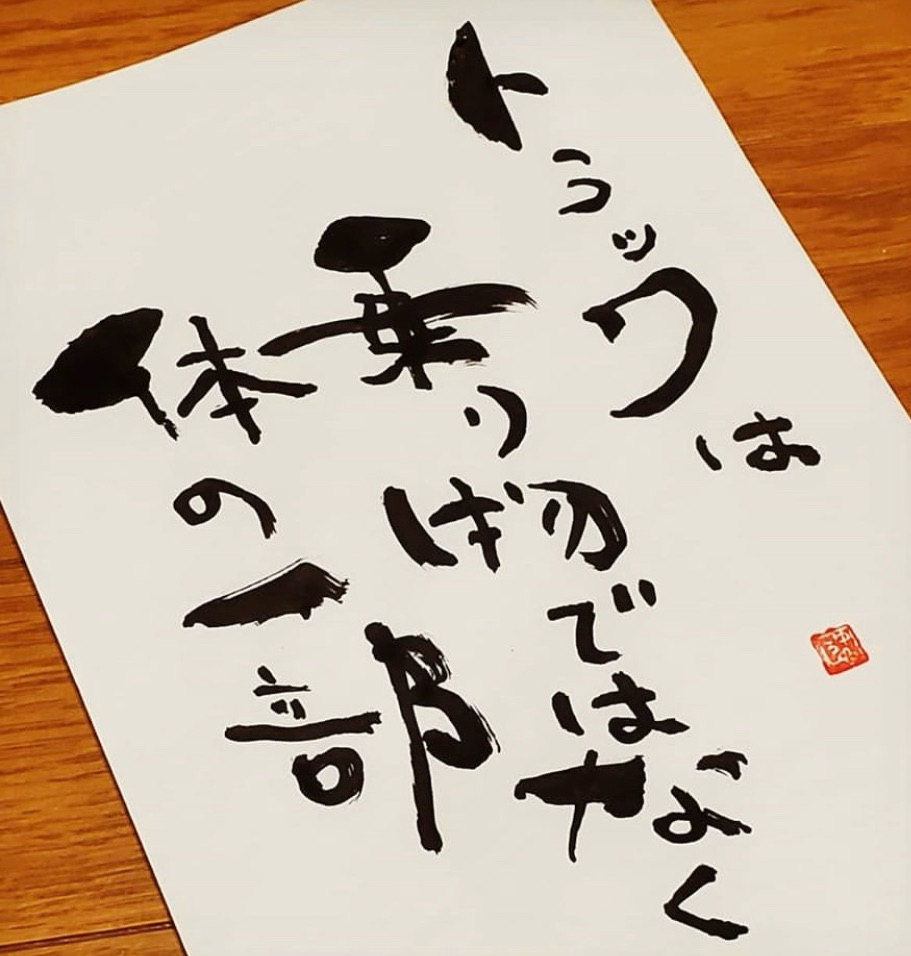 トラックは
乗り物ではなく
体の一部